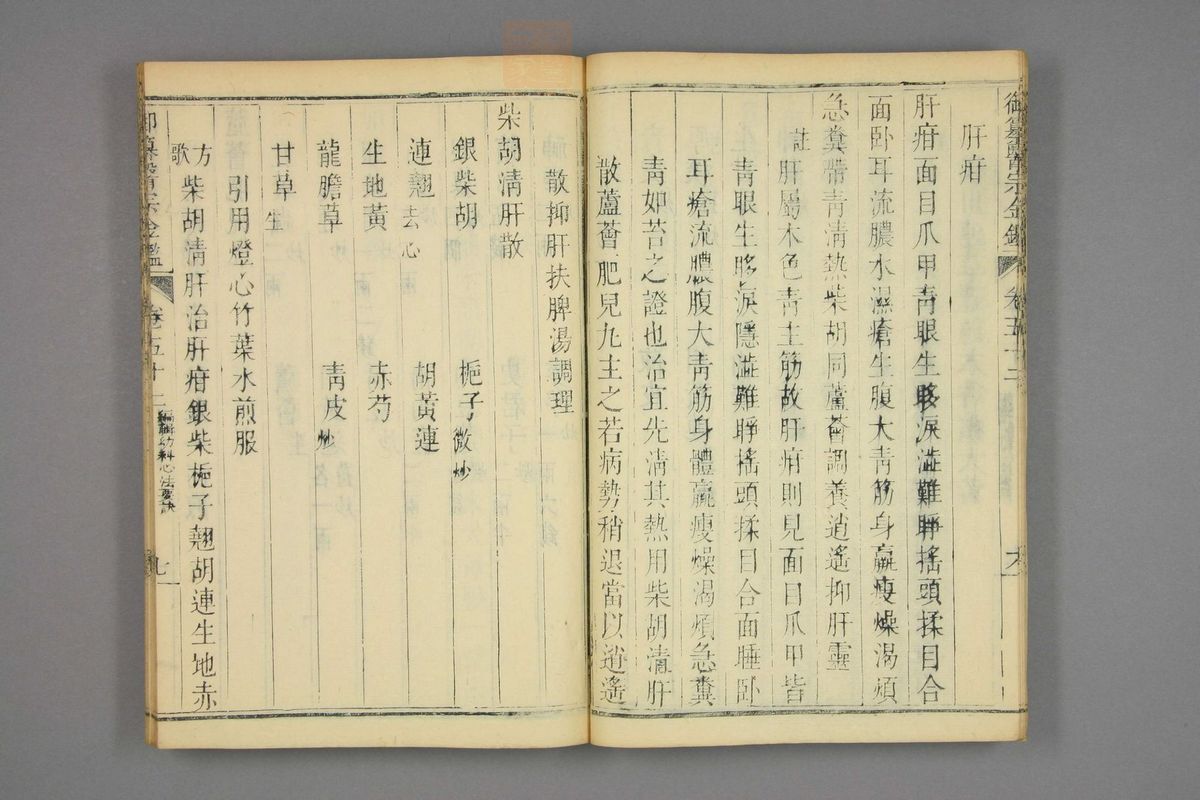 御纂醫宗金鑑 卷五十二 六
肝疳
肝疳面目爪甲靑眼生眵淚澁難睜搖頭揉目合
面卧耳流膿水濕瘡生腹大靑筋身羸瘦燥渴煩
急糞帶靑淸熱柴胡同蘆薈調養逍遙抑肝靈
註肝屬木色靑主筋故肝疳則見面目爪甲皆
靑眼生眵淚隱澁難睜搖頭揉目合面睡卧
耳瘡流膿腹大靑筋身體羸瘦燥渴煩急糞
靑如苔之證也治宜先淸其熱用柴胡淸肝
散蘆薈肥兒丸主之若病勢稍退當以逍遙
散抑肝扶脾湯調理
柴胡淸肝散
銀柴胡 梔子微炒
連翹去心 胡黃連
生地黃 赤芍
龍膽草 靑皮炒
甘草生
引用燈心竹葉水煎服
方歌 柴胡淸肝治肝疳銀柴梔子翹胡連生地赤
御纂醫宗金鑑 卷五十二 編輯幼科心法要訣 七